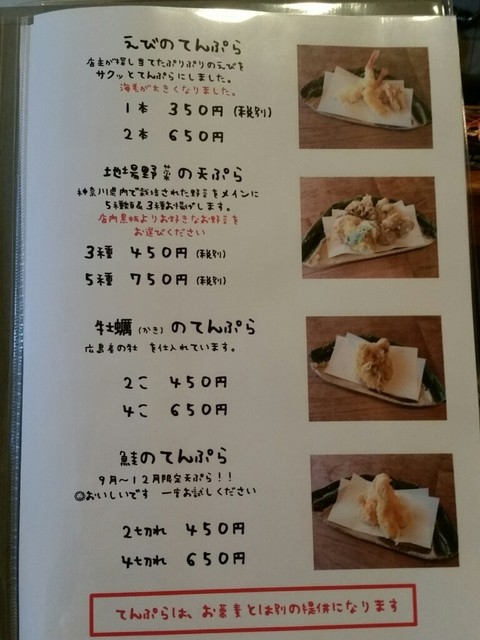 えびのてんぷら
店主が探し当てたぷりぷりのえびを
サクッとてんぷらにしました。
海老が大きくなりました。
1本 350円 (税別)
2本 650円
地場野菜の天ぷら
神奈川県内で栽培された野菜をメインに
5種類&3種お揚げします。
店内黒板よりお好きなお野菜を
お選びください
3種 450円 (税別)
5種 750円 (税別)
牡蠣(かき)のてんぷら
広島産の牡 を仕入れています。
2こ 450円
4こ 650円
鮭のてんぷら
9月〜12月限定天ぷら!!
◎おいしいです 一度お試しください
2切れ 450円
4切れ 650円
てんぷらは、お蕎麦とは別の提供になります